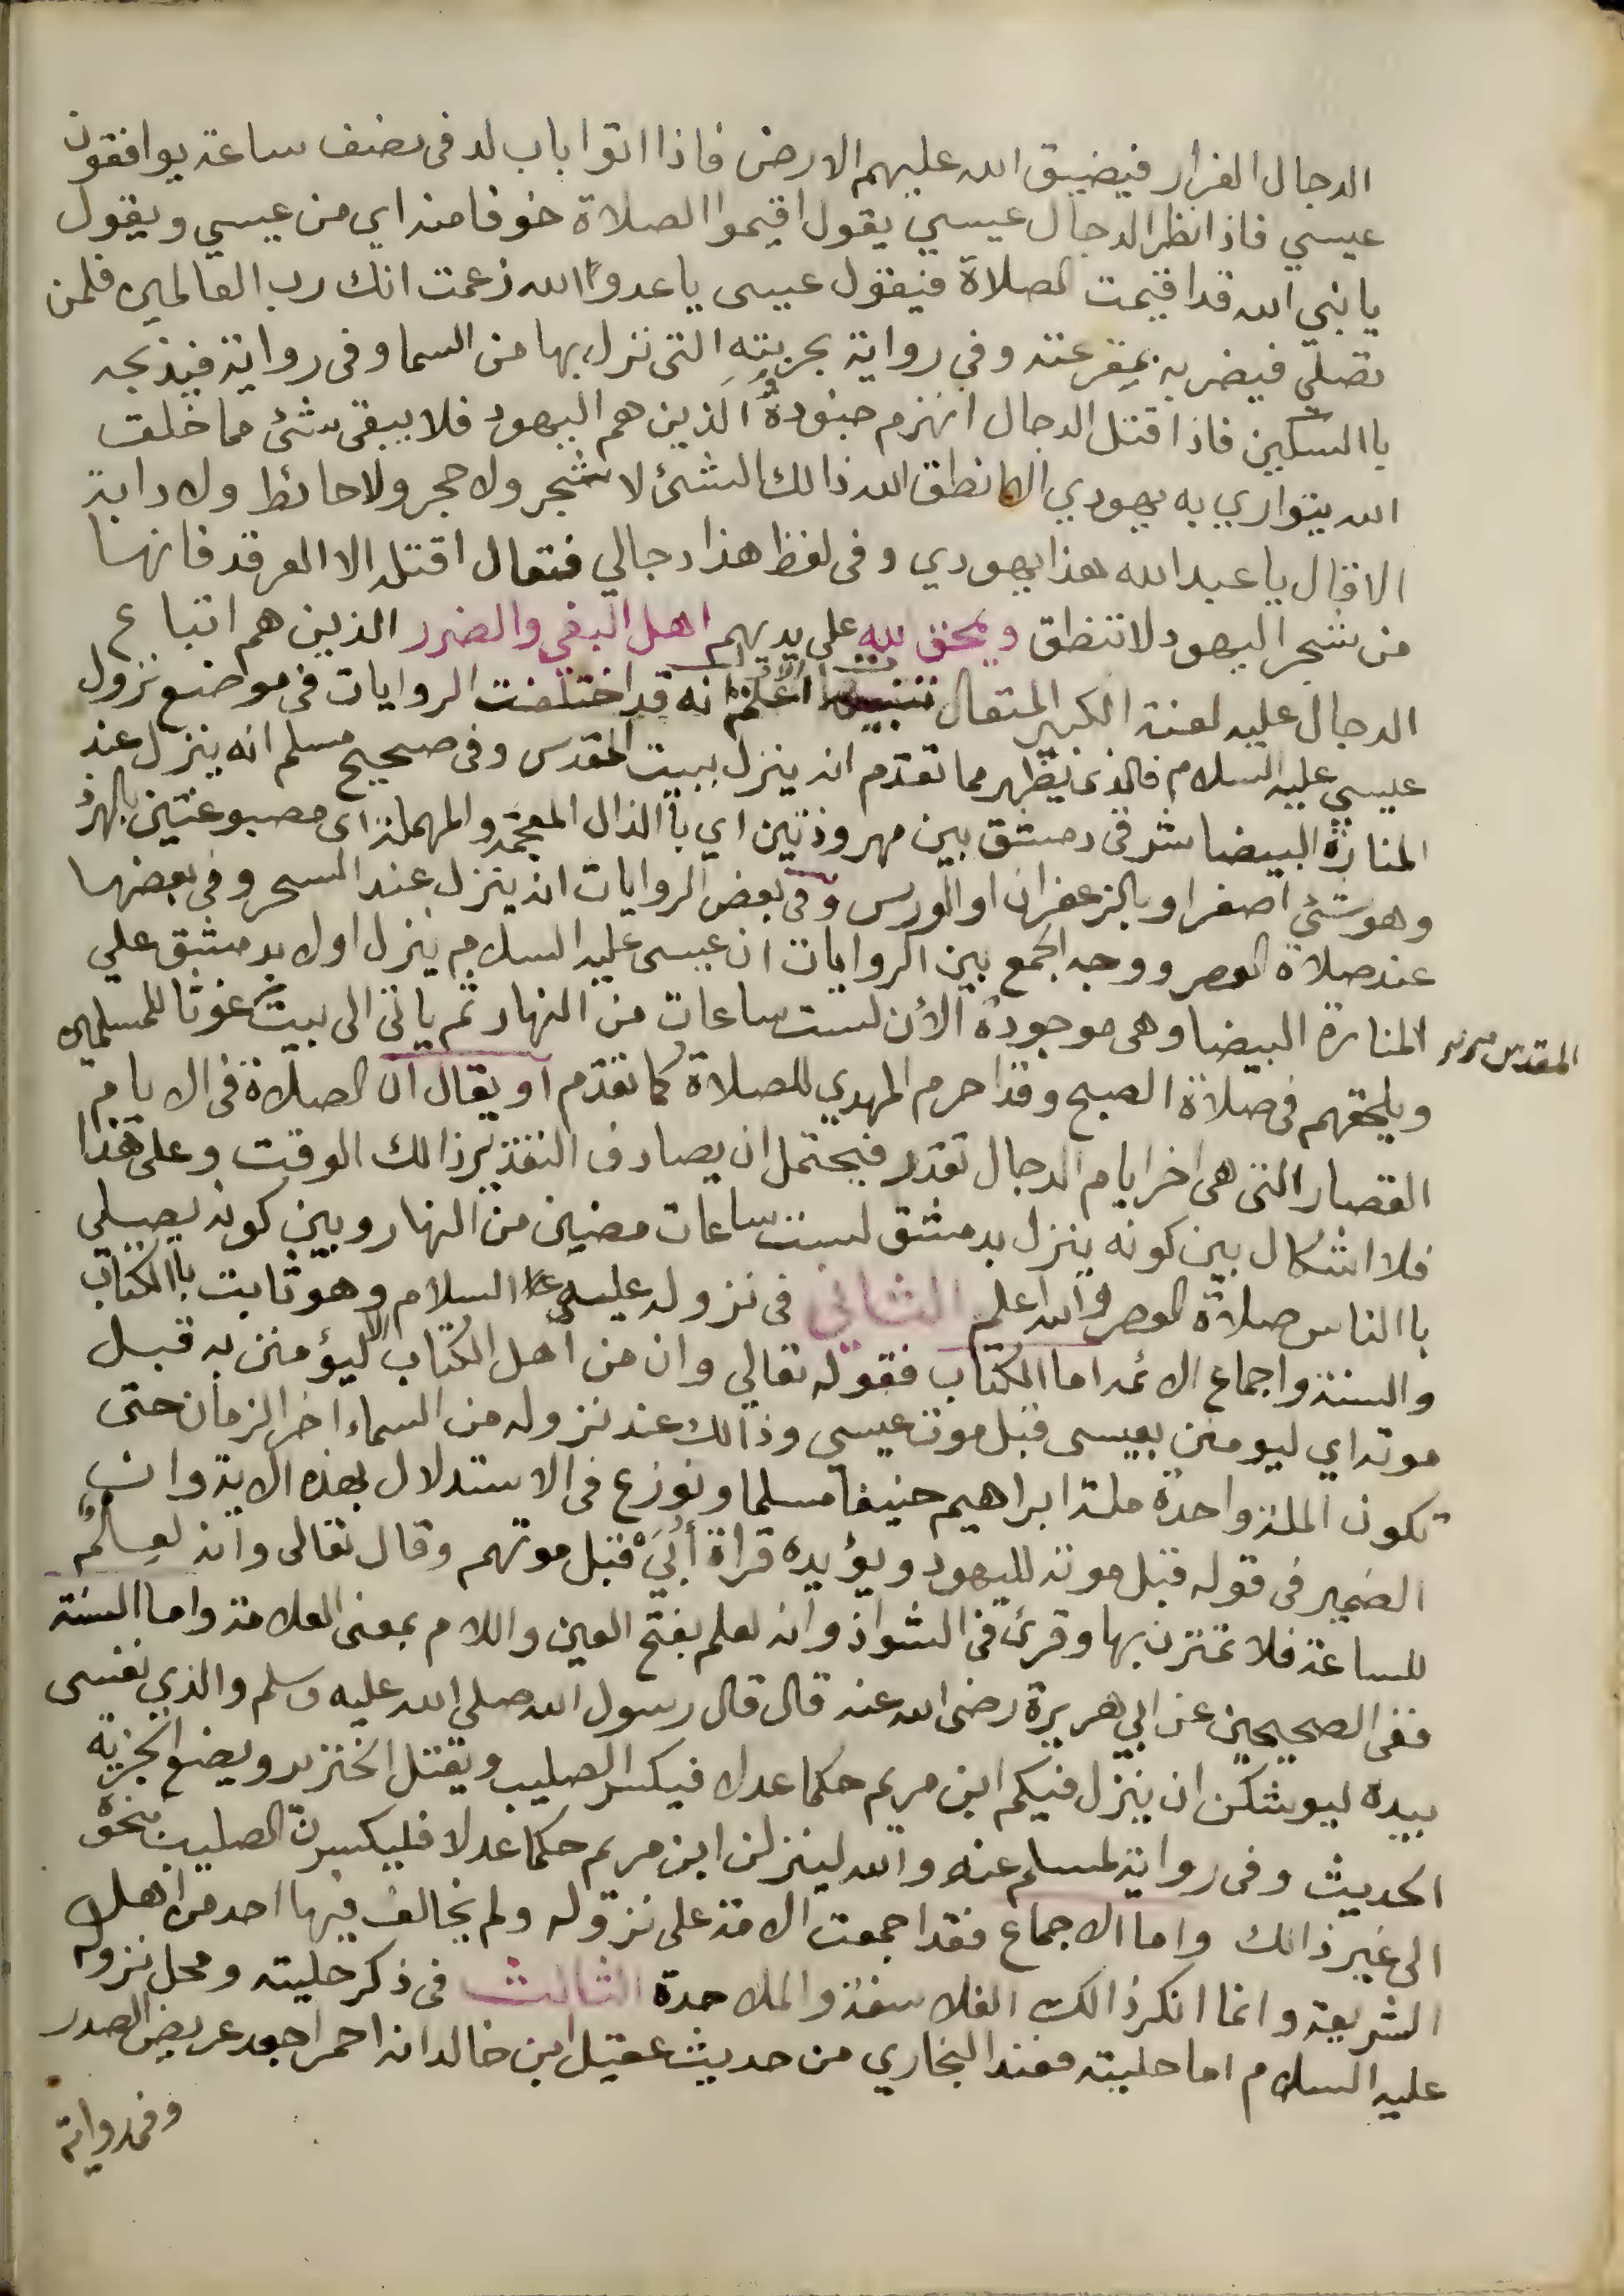 الدجال الفرار فيضيق الله عليهم الارض فاذا اتوا باب لد فى نصف ساعة يوافقون
عيسي فاذا نظر الدجال عيسي يقول اقيموا الصلاة خوفا منه اي من عيسي ويقول
يا نبي الله قد اقيمت الصلاة فيقول عيسى يا عدو الله زعمت انك رب العالمين فلمن
تصلي فيضربه بمقرعته وفي رواية بحربته التى نزل بها من السما وفى رواية فيذبحه
باالسكين فاذا قتل الدجال انهزم جنوده الذين هم اليهود فلا يبقى شئ مما خلق
الله يتواري به يهودي الا انطق الله ذالك الشئ لا شجر ولا حجر ولا حائط ولا دابة
الا قال يا عبد الله هذا يهودي وفى لفظ هذا دجالي فتعال اقتله الا الغرقد فانها
من شجر اليهود لا تنطق ويمحق الله على يديهم اهل البغي والضرر الذين هم اتباع
الدجال عليه لعنة الكبير المتعال اعلم انه قد اختلفت الروايات فى موضع نزول
عيسي عليه السلام فالذى يظهر مما تقدم انه ينزل ببيت المقدس وفى صحيح مسلم انه ينزل عند
المنارة البيضا شرقى دمشق بين مهروذتين اي باالذال المعجمة والمهملة اى مصبوغتين بالهرد
وهو شئ اصفر او بالزعفران او الورس وفى بعض الروايات انه ينزل عند السحر وفى بعضها
عند صلاة العصر ووجه الجمع بين الروايات ان عيسى عليه السلام ينزل اولا بدمشق علي
المنارة البيضا وهى موجودة الأن لست ساعات من النهار ثم ياتى الى بيت غوثا للمسلمين
المقدس
ويلحقهم فى صلاة الصبح وقد احرم المهدي للصلاة كما تقدم او يقال ان الصلاة فى الايام
القصار التى هى اخر ايام الدجال تقدر فيحتمل ان يصادف التقدير ذالك الوقت وعلى هذا
فلا اشكال بين كونه ينزل بدمشق لست ساعات مضين من النهار وبين كونه يصلي
باالناس صلاة العصر والله اعلم الثاني فى نزوله عليه السلام وهو ثابت باالكتاب
والسنة واجماع الائمة اما الكتاب فقوله تعالي وان من اهل الكتاب الا ليؤمنن به قبل
موته اي ليومنن بعيسى قبل موت عيسي وذالك عند نزوله من السماء اخر الزمان حتى
تكون الملة واحدة ملة ابراهيم حنيفا مسلما ونوزع فى الاستدلال بهذه الاية وان
الضمير فى قوله قبل موته لليهود ويؤيده قراة أُبَيّ قبل موتهم وقال تعالى وانه لعلم
للساعة فلا تمترن بها وقرئ فى الشواذ وانه لعلم بفتح العين واللام بمعنى العلامة واما السنة
ففى الصحيحين عن ابي هريرة رضى الله عنه قال قال رسول الله صلى الله عليه وسلم والذي نفسى
بيده ليوشكن ان ينزل فيكم ابن مريم حكما عدلا فيكسر الصليب ويقتل الخنزير ويضع الجزية
الحديث وفى رواية لمسلم عنه والله لينزلن ابن مريم حكما عدلا فليكسرن الصليب بنحوه
الى غير ذالك واما الاجماع فقد اجمعت الامة على نزوله ولم يخالف فيها احد من اهل
الشريعة وانما انكر ذالك الفلاسفة والملاحدة الثالث فى ذكر حليته ومحل نزوله
عليه السلام اما حليته فعند البخاري من حديث عقيل ابن خالد انه احمر اجعد عريض الصدر
وفى رواية